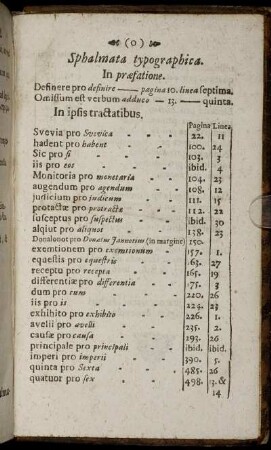 (0)
Sphalmata typographica.
In præfatione.
Definere pro definire —— pagina 10. linea septima.
Omissum est verbum adduco — 13. —— quinta.
In ipsis tractatibus.
Pagina Linea
Svevia pro Svevica - - - 22. 11
hadent pro habent - - - 100. 24
Sic pro si - - - 103. 3
iis pro eos - - - ibid. 4
Monitoria pro monetaria - - - 104. 23
augendum pro agendum - - - 108. 12
judicium pro indicium - - - 111. 15
protactæ pro protracta - - - 112. 22
susceptus pro suspectus - - - ibid. 30
alqiut pro aliquot - - - 138. 23
Donaluoot pro Donatus Jannotius (in margine) 150.
exemtionem pro exemtionum - - - 157. 1.
equestis pro equestris - - - 63. 27
receptu pro recepta - - - 165. 19
differentiæ pro differentia - - - 75. 3
dum pro cum - - - 220. 26
iis pro ii - - - 224. 23
exhibito pro exhibito - - - 226. 1.
avelii pro avelli - - - 235. 2.
causæ pro causa - - - 293. 26
principale pro principali - - - ibid. ibid.
imperi pro imperii - - - 390. 5.
quinta pro Sexta - - - 485. 26
quatuor pro sex - - - 498. 13. &
14